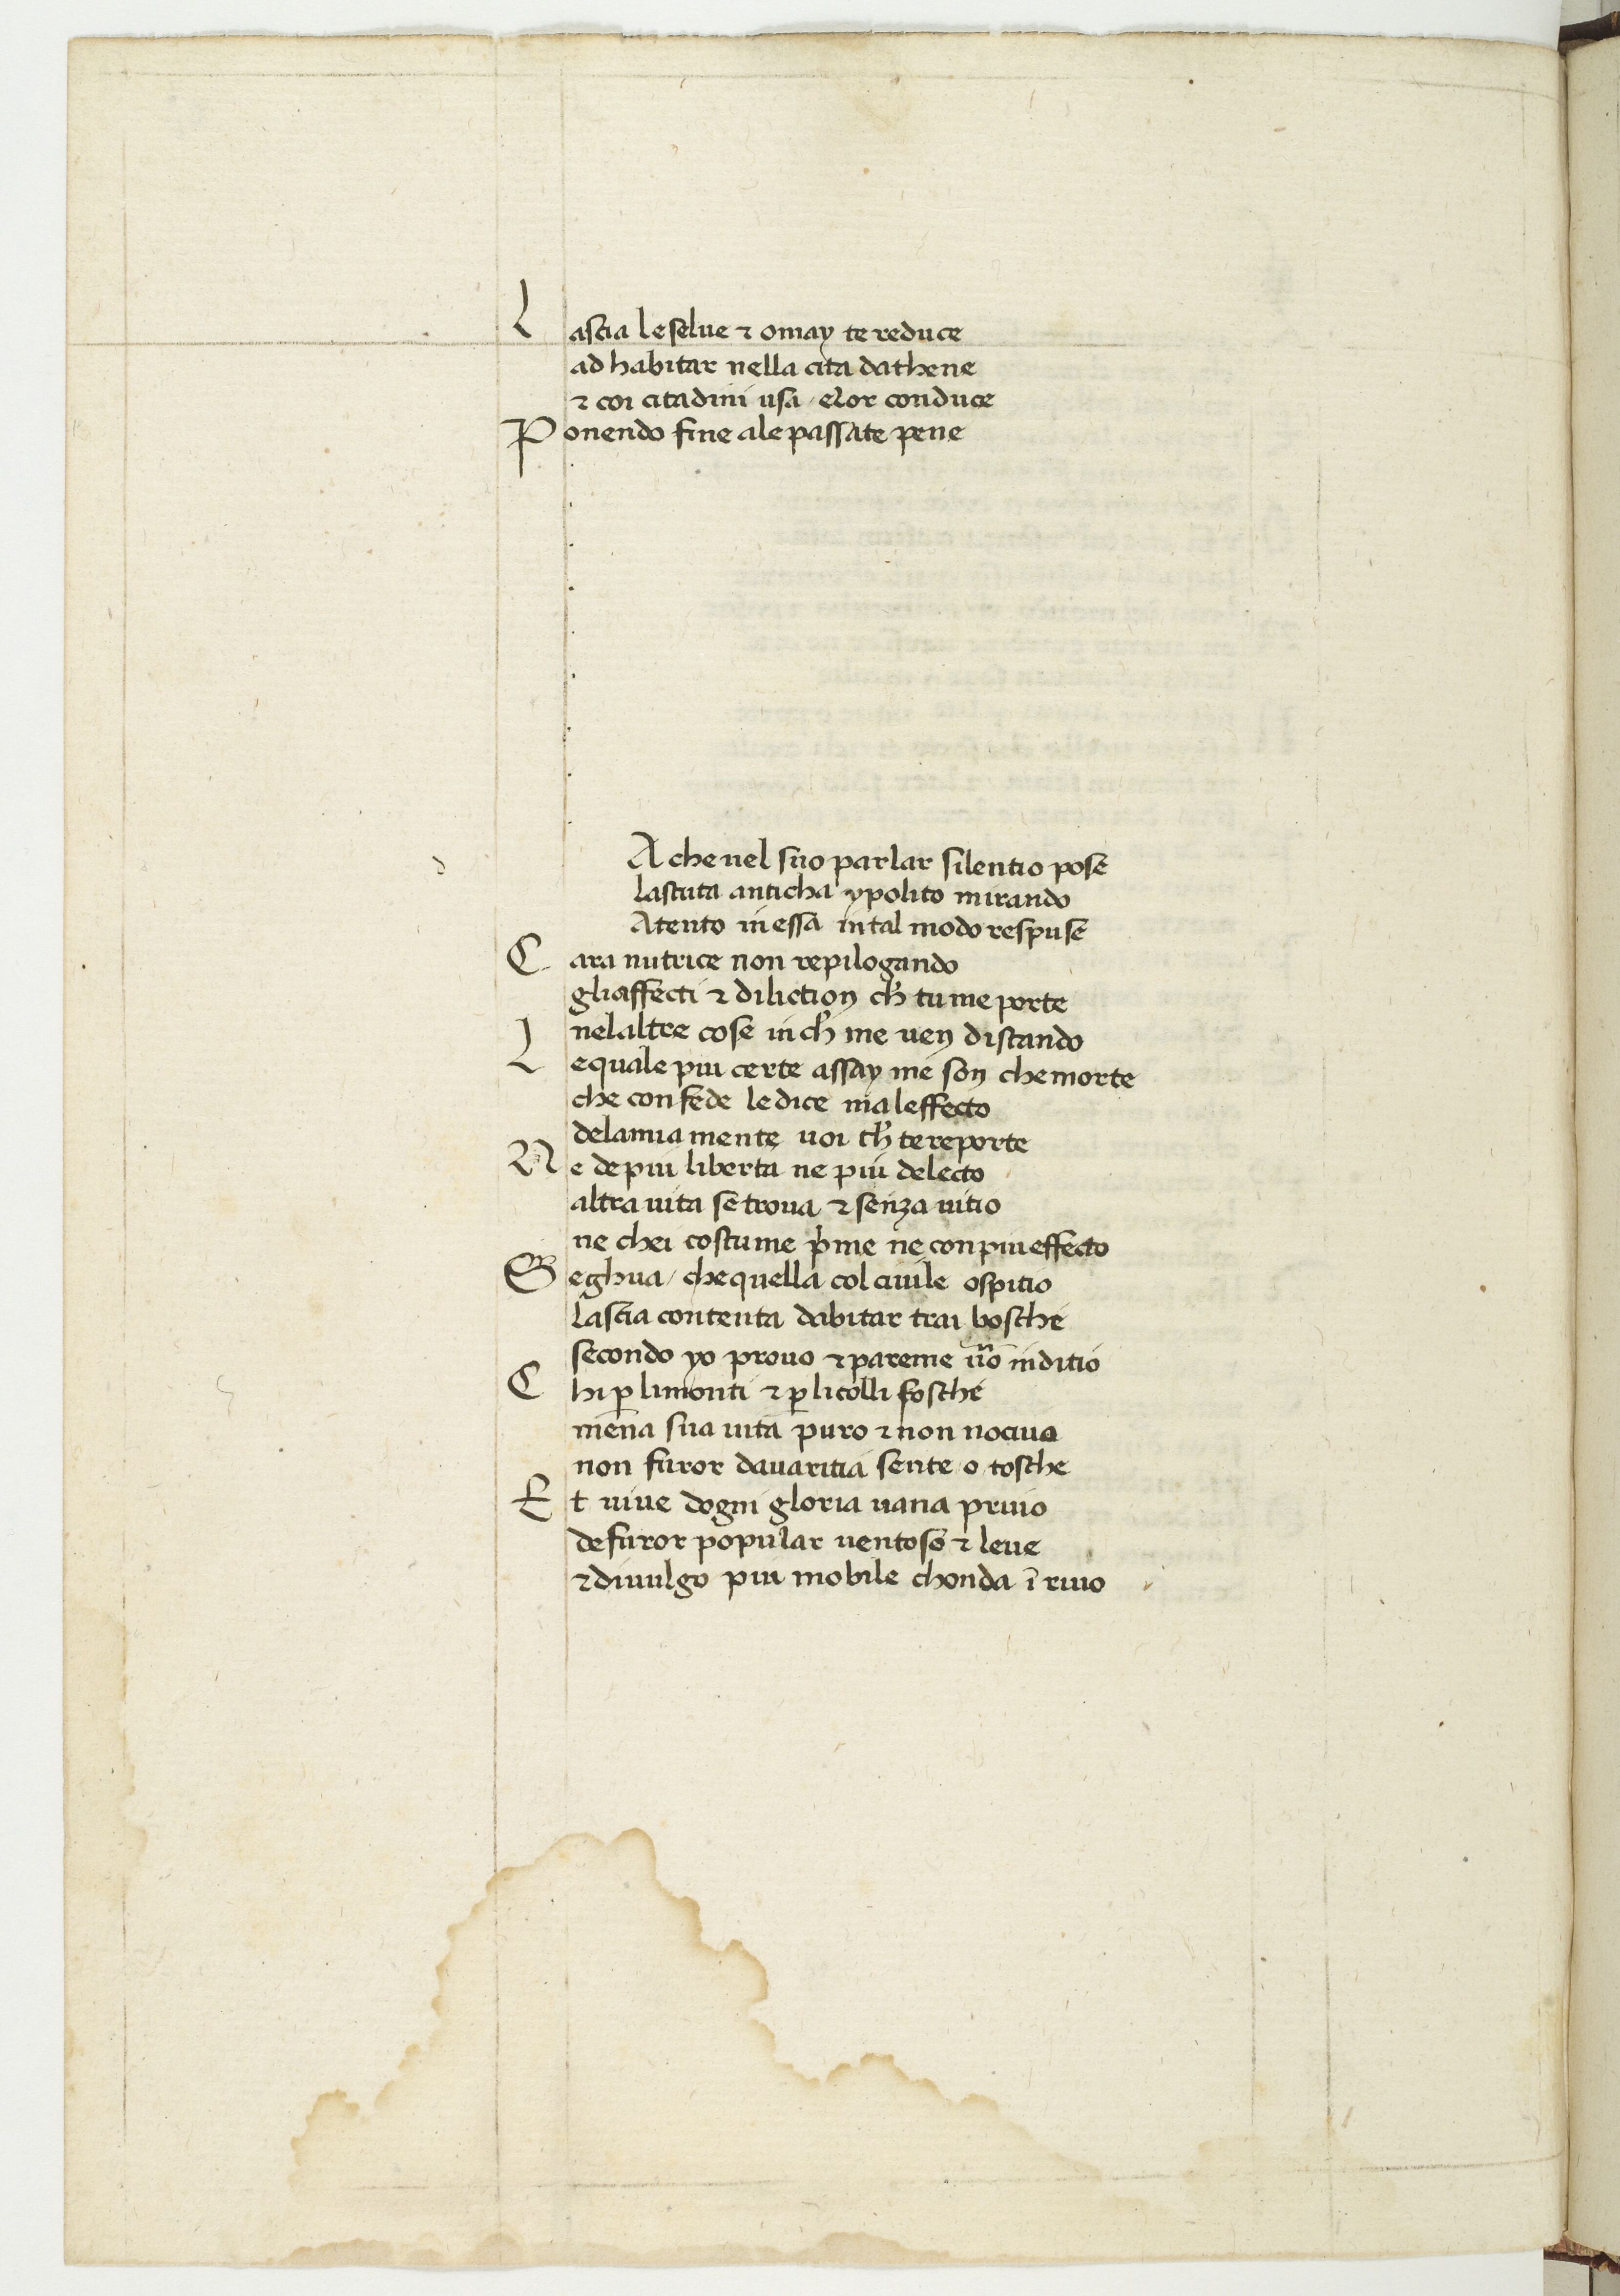 Lascia le selve ⁊ omay te reduce
ad habitar nella cita dathene
⁊ coi citadini usa / elor conduce
Ponendo fine ale passate pene
d
A che nel suo parlar silentio pose
lastuta anticha ypolito mirando
Atento in essa in tal modo respuse
Cara nutrice non repilogando
gli affecti ⁊ diliction ch̄ tu me porte
nel altre cose in ch̄ me ven distando
Le quale piu certe assay me son che morte
che con fede le dice mal effecto
dela mia mente voi ch̄ te reporte
Ne de piu liberta ne piu delecto
altra vita se trova ⁊ senza vitio
ne chei costume p̄me ne con piu effecto
Seghua / che quella col civile ospitio
lascia contenta dabitar trai bosche
secondo yo provo ⁊ pareme ūo inditio
Chi ꝑ li monti ⁊ ꝑ li colli fosche
mena sua vita puro ⁊ non nociva
non furor davaritia sente o tosche
Et vive dogni gloria vana privio
de furor popular ventoso ⁊ leve
⁊ di vulgo piu mobile chonda ī rivo